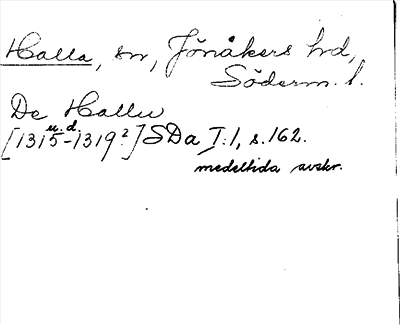 Halla, sn, Jönåkers hd,
Söderm. l.
De Hallu
u.d.
[1315-1319?] SDa I:1, s.162.
medeltida avskr.